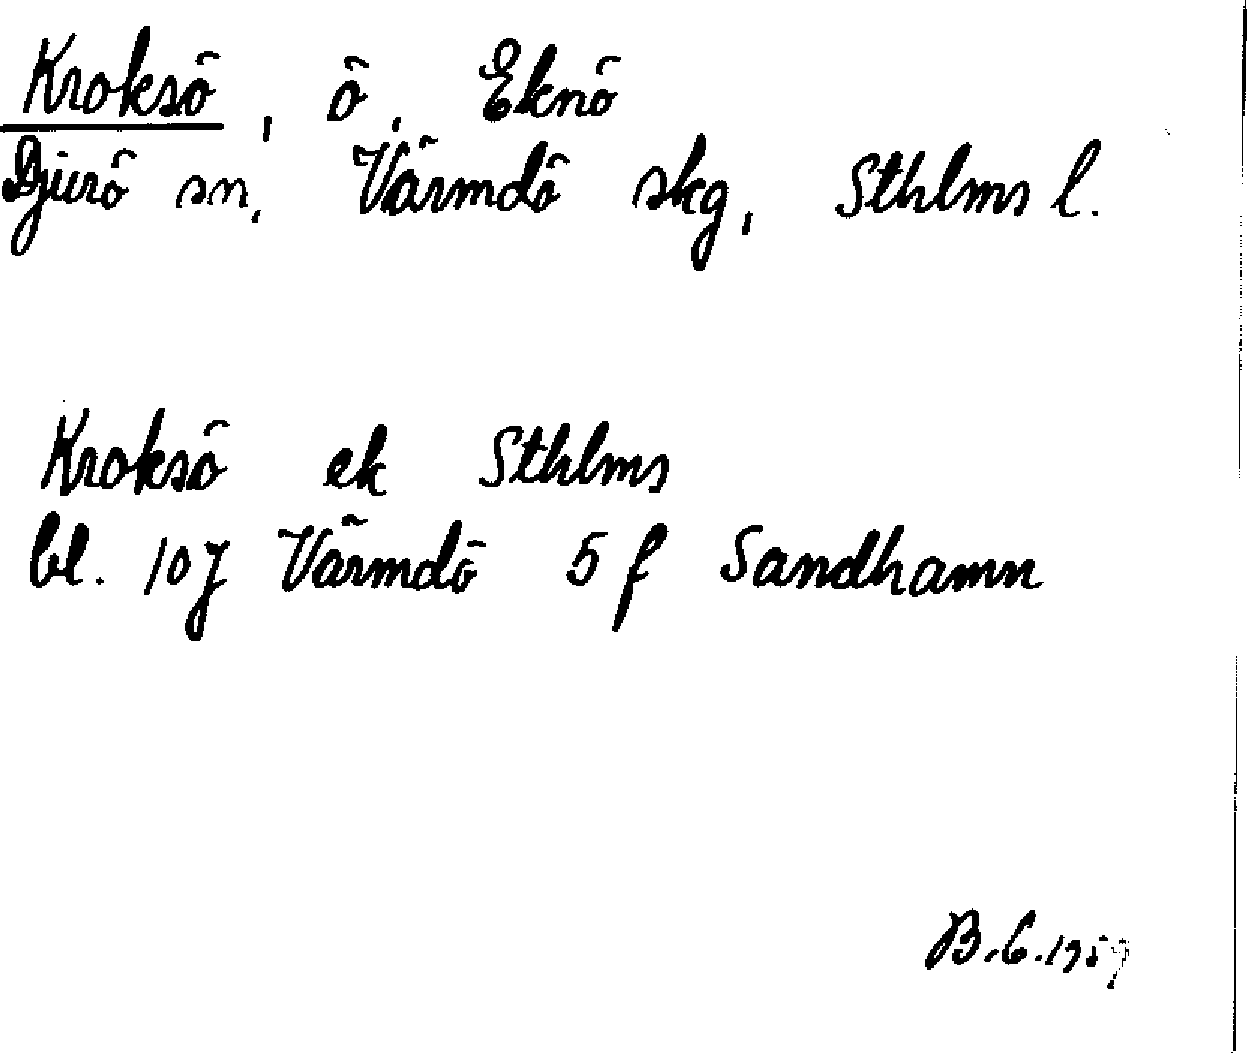 Kroksö, ö, Eknö
Djurö sn, Värmdö skg, Sthlms l.
Kroksö ek Sthlms
bl. 107 Värmdö 5 f Sandhamn
B.C. 1959